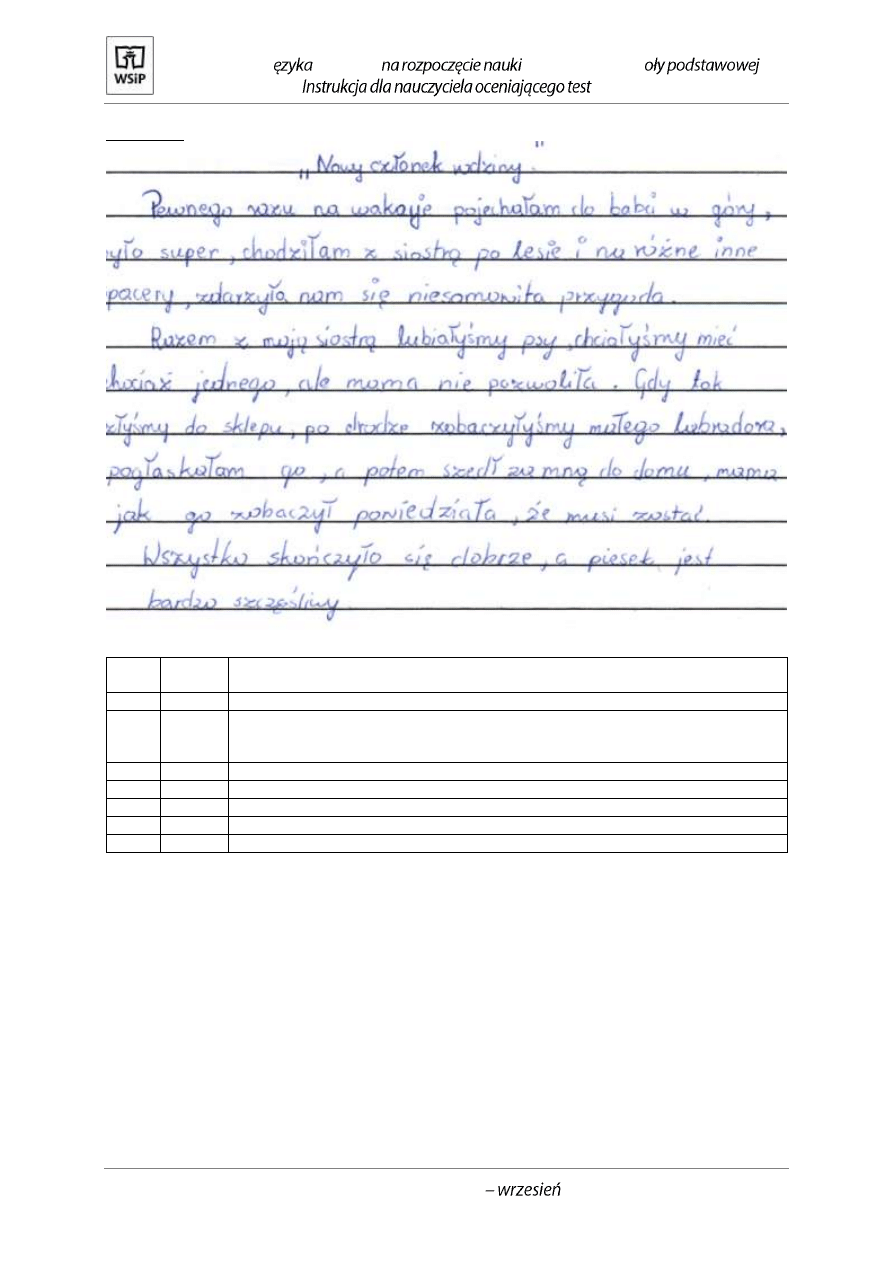 WSiP
ęzyka na rozpoczęcie nauki oły podstawowej
Instrukcja dla nauczyciela oceniającego test
„Nowy członek rodziny."
Pewnego razu na wakacje pojechałam do babci w góry,
yło super, chodziłam z siostrą po lesie i na różne inne
pacery, zdarzyła nam się niesamowita przygoda.
Razem z moją siostrą lubiałyśmy psy, chciałyśmy mieć
hociaż jednego, ale mama nie pozwoliła. Gdy tak
złyśmy do sklepu, po drodze zobaczyłyśmy małego labradora,
pogłaskałam go, a potem szedł za mną do domu, mama
jak go zobaczył powiedziała, że musi zostać.
Wszystko skończyło się dobrze, a piesek jest
bardzo szczęśliwy
– wrzesień